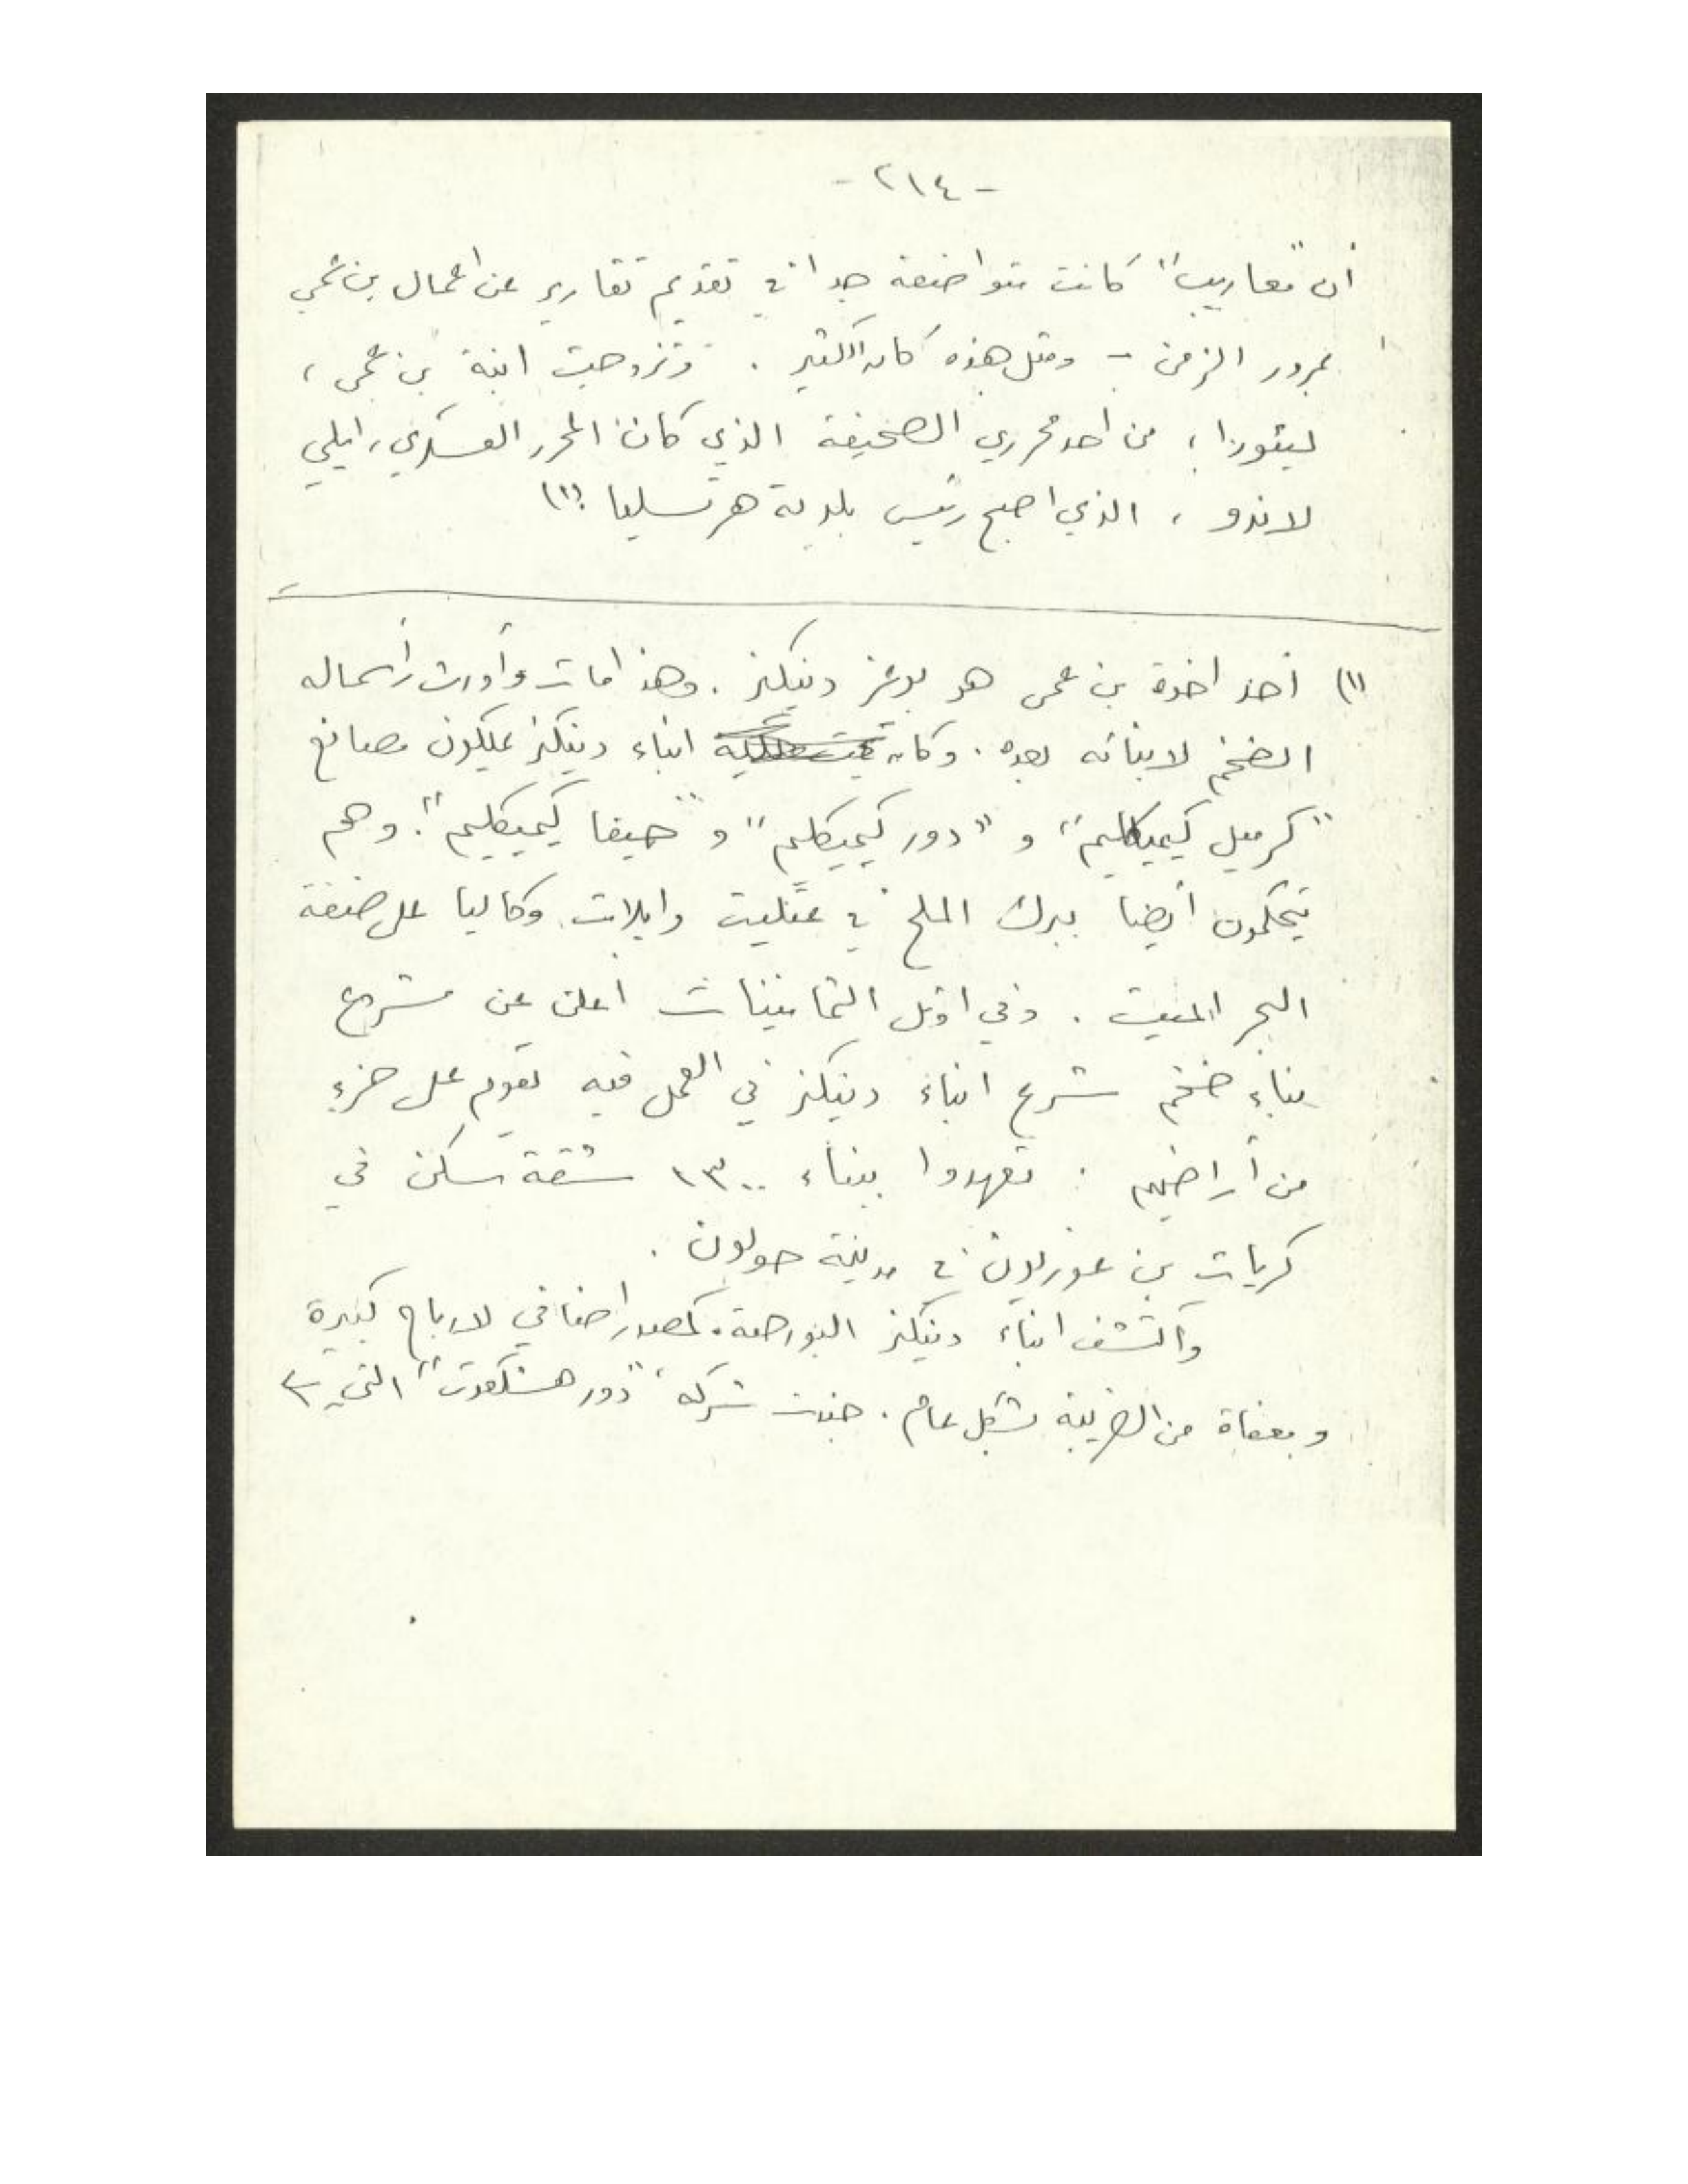 - ٢١٤ -
أن "معاريب" كانت متواضعة جدا في تقديم تقارير عن اعمال بن عمي
بمرور الزمن - ومثل هذه كان الكثير . وتزوجت ابنة بن عمي ،
ليئورا ، من احد محرري الصحيفة الذي كان المحرر العسكري ، ايلي
لاندو ، الذي اصبح رئيس بلدية هرتسليا (١)
(١) أحد اخوة بن عمي هو بوعز دنيكنز . وهذا مات وأورث رأسماله
الضخم لابنائه بعده . وكان ابناء دنيكنز يملكون مصانع
"كرميل كيميكليم" و "دور كيميكليم" و "حيفا كيميكليم" . وهم
يتحكمون أيضا ببرك الملح في عتليت وايلات وكاليا على ضفة
البحر الميت . وفي اوئل الثمانينات أعلن عن مشروع
بناء ضخم شرع ابناء دنيكنز في العمل فيه يقوم على جزء
من أراضيهم : تعهدوا ببناء ١٣٠٠ شقة سكن في
كريات بن غوريون في مدينة حولون .
واكتشف ابناء دنيكنز البورصة كمصدر اضافي لارباح كبيرة
ومعفاة من الضريبة بشكل عام . جندت شركه "دور هشكعوت" التي